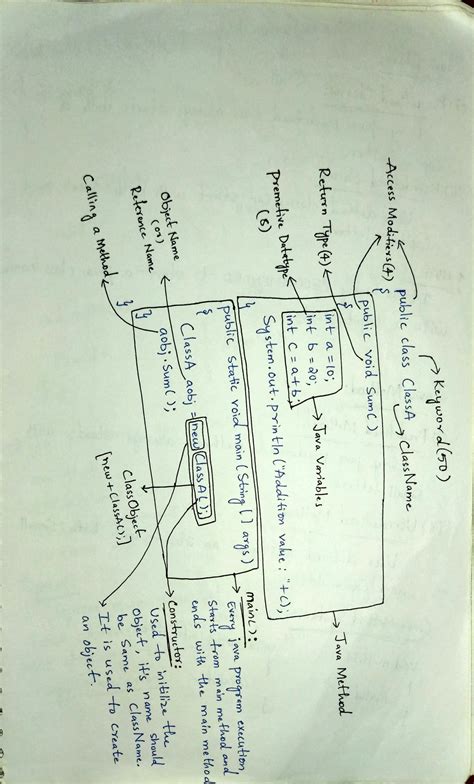 Keyword(50)
public class ClassA
ClassName
Access Modifiers(4)
{
public void Sum()
{
Return Type(4)
int a = 10;
int b = 20;
int c = a+b;
Java Variables
Premetive Datatype
(8)
System.out.println("Addition value: "+c);
}
Java Method
public static void main(String[] args)
{
main():
Every java program execution
starts from main method and
ends with the main method
ClassA aobj = new ClassA();
Object Name
(or)
Reference Name
aobj.Sum();
}
}
Calling a Method
ClassObject
[new+ClassA();]
Constructor:
Used to initilize the
Object, it's name should
be Same as ClassName.
It is used to create
an object.